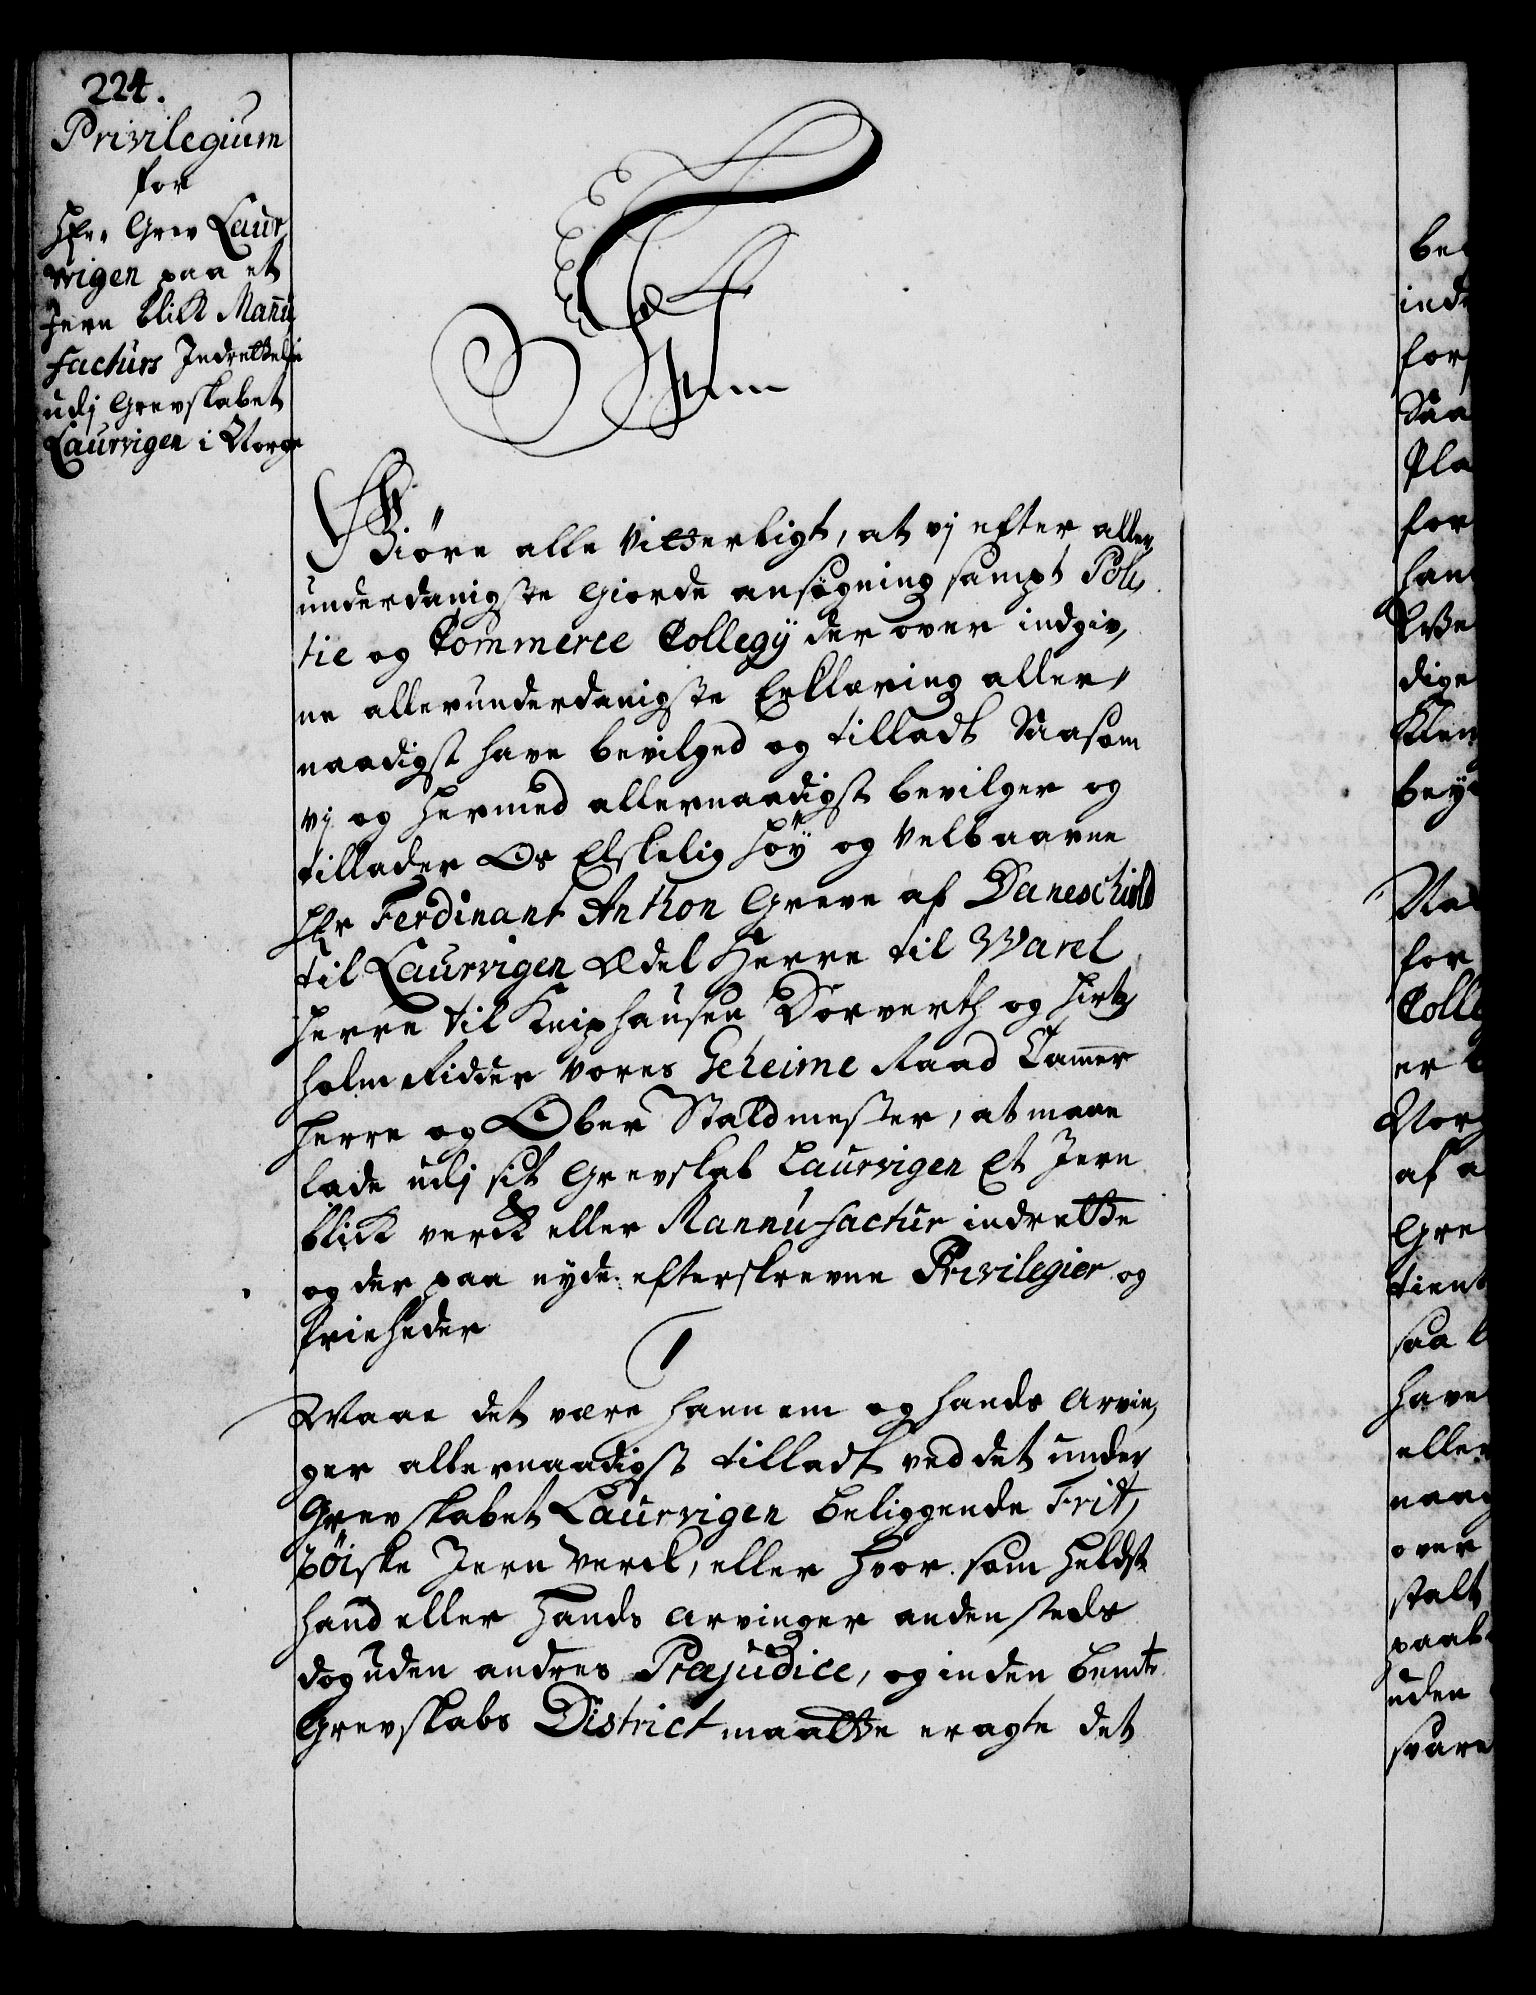 224.
Privilegium
for
Hr. Grev Laur
vigen paa et
Jern blick Mannu
facturs Indrettelse
udj Grevskabet
Laurvigen i Norge
F 4
Giöre alle Vitterligt, at vj efter aller,
underdanigste Giorde ansøgning sampt Poli,
tie og Commerce Collegij der over indgiv,
ne allerunderdanigste Erklæring aller,
naadigst have bevilged og tilladt Saasom
vj og hermed allernaadigst bevilger og
tillader Os Elskelig höy og Velbaarne
Hr Ferdinant Anthon Greve af Daneschiold
til Laurvigen Ædel Herre til Warel
Herre til Kniphausen Dorverth og Hirtz
holm Ridder Vores Geheime Raad Cammer
Herre og Ober Staldmester, at maae
lade udj sit Grevskab Laurvigen Et Jern
blick verck eller Mannufactur indrette
og der paa nyde efterskrevne Privilegier og
Frieheder
1
Maae det være hannem og hands Arvin,
ger allernaadigst tilladt ved det under
Grevskabet Laurvigen beliggende Frit,
zöiske Jern Verck, eller hvor som heldst
hand eller hands Arvinger andensteds
dog uden andres Præjudice, og inden bemte
Grevskabs District maatte eragte det
ind
for
Saa
Pla
for
han
dige
bey
for
Colle
er
Nor
af a
Gre
tient
saa
have
eller
naag
over
stalt
paab
uden
svare